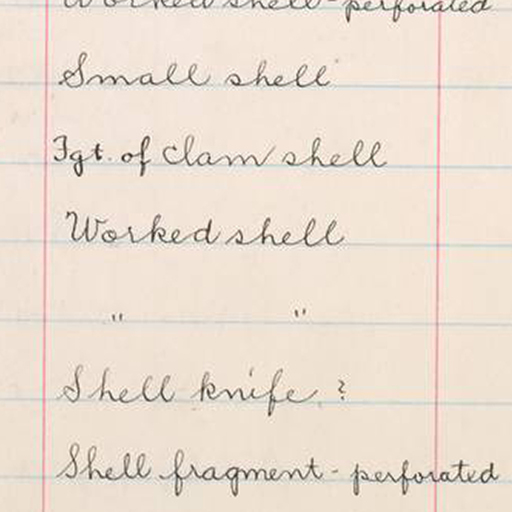 Worked shell - perforated
Small shell
Fgt. of clam shell
Worked shell
" "
Shell knife ?
Shell fragment - perforated